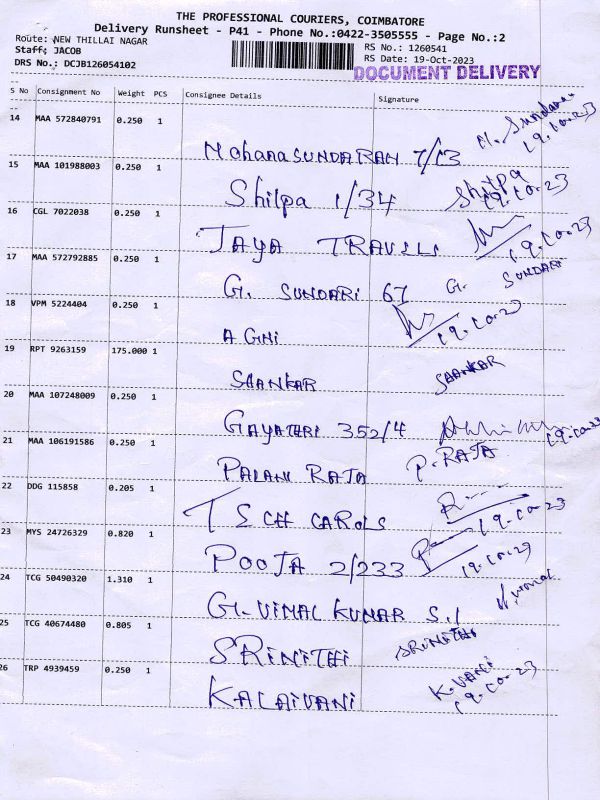 THE PROFESSIONAL COURIERS, COIMBATORE
Delivery Runsheet - P41 - Phone No.:0422-3505555 - Page No.:2
Route: NEW THILLAI NAGAR
RS No.: 1260541
Staff: JACOB
RS Date: 19-Oct-2023
DRS No.: DCJB126054102
DOCUMENT DELIVERY
S No Consignment No Weight PCS Consignee Details Signature
14 MAA 572840791 0.250 1
MahanaSUNDARAM 7/13 M. Sundaram 19.10.23
15 MAA 101988003 0.250 1
Shilpa 1/34 Shilpa 19.10.23
16 CGL 7022038 0.250 1
JAYA TRAVELS 19.10.23
17 MAA 572792885 0.250 1
G. SUNDARI 67 G. SUNDARI
18 VPM 5224404 0.250 1
A GINI 19.10.23
19 RPT 9263159 175.000 1
SAANKAR SAANKAR
20 MAA 107248009 0.250 1
GAYATHRI 352/4 19.10.23
21 MAA 106191586 0.250 1
PALANI RAJA P. RAJA
22 DDG 115858 0.205 1
TECH CAROLS 19.10.23
23 MYS 24726329 0.820 1
POOJA 2/233 19.10.23
24 TCG 50490320 1.310 1
G. VIMAL KUMAR S./
25 TCG 40674480 0.805 1
SRINITHI SRINITHI
26 TRP 4939459 0.250 1
KALAIVANI K. VANI 19.10.23